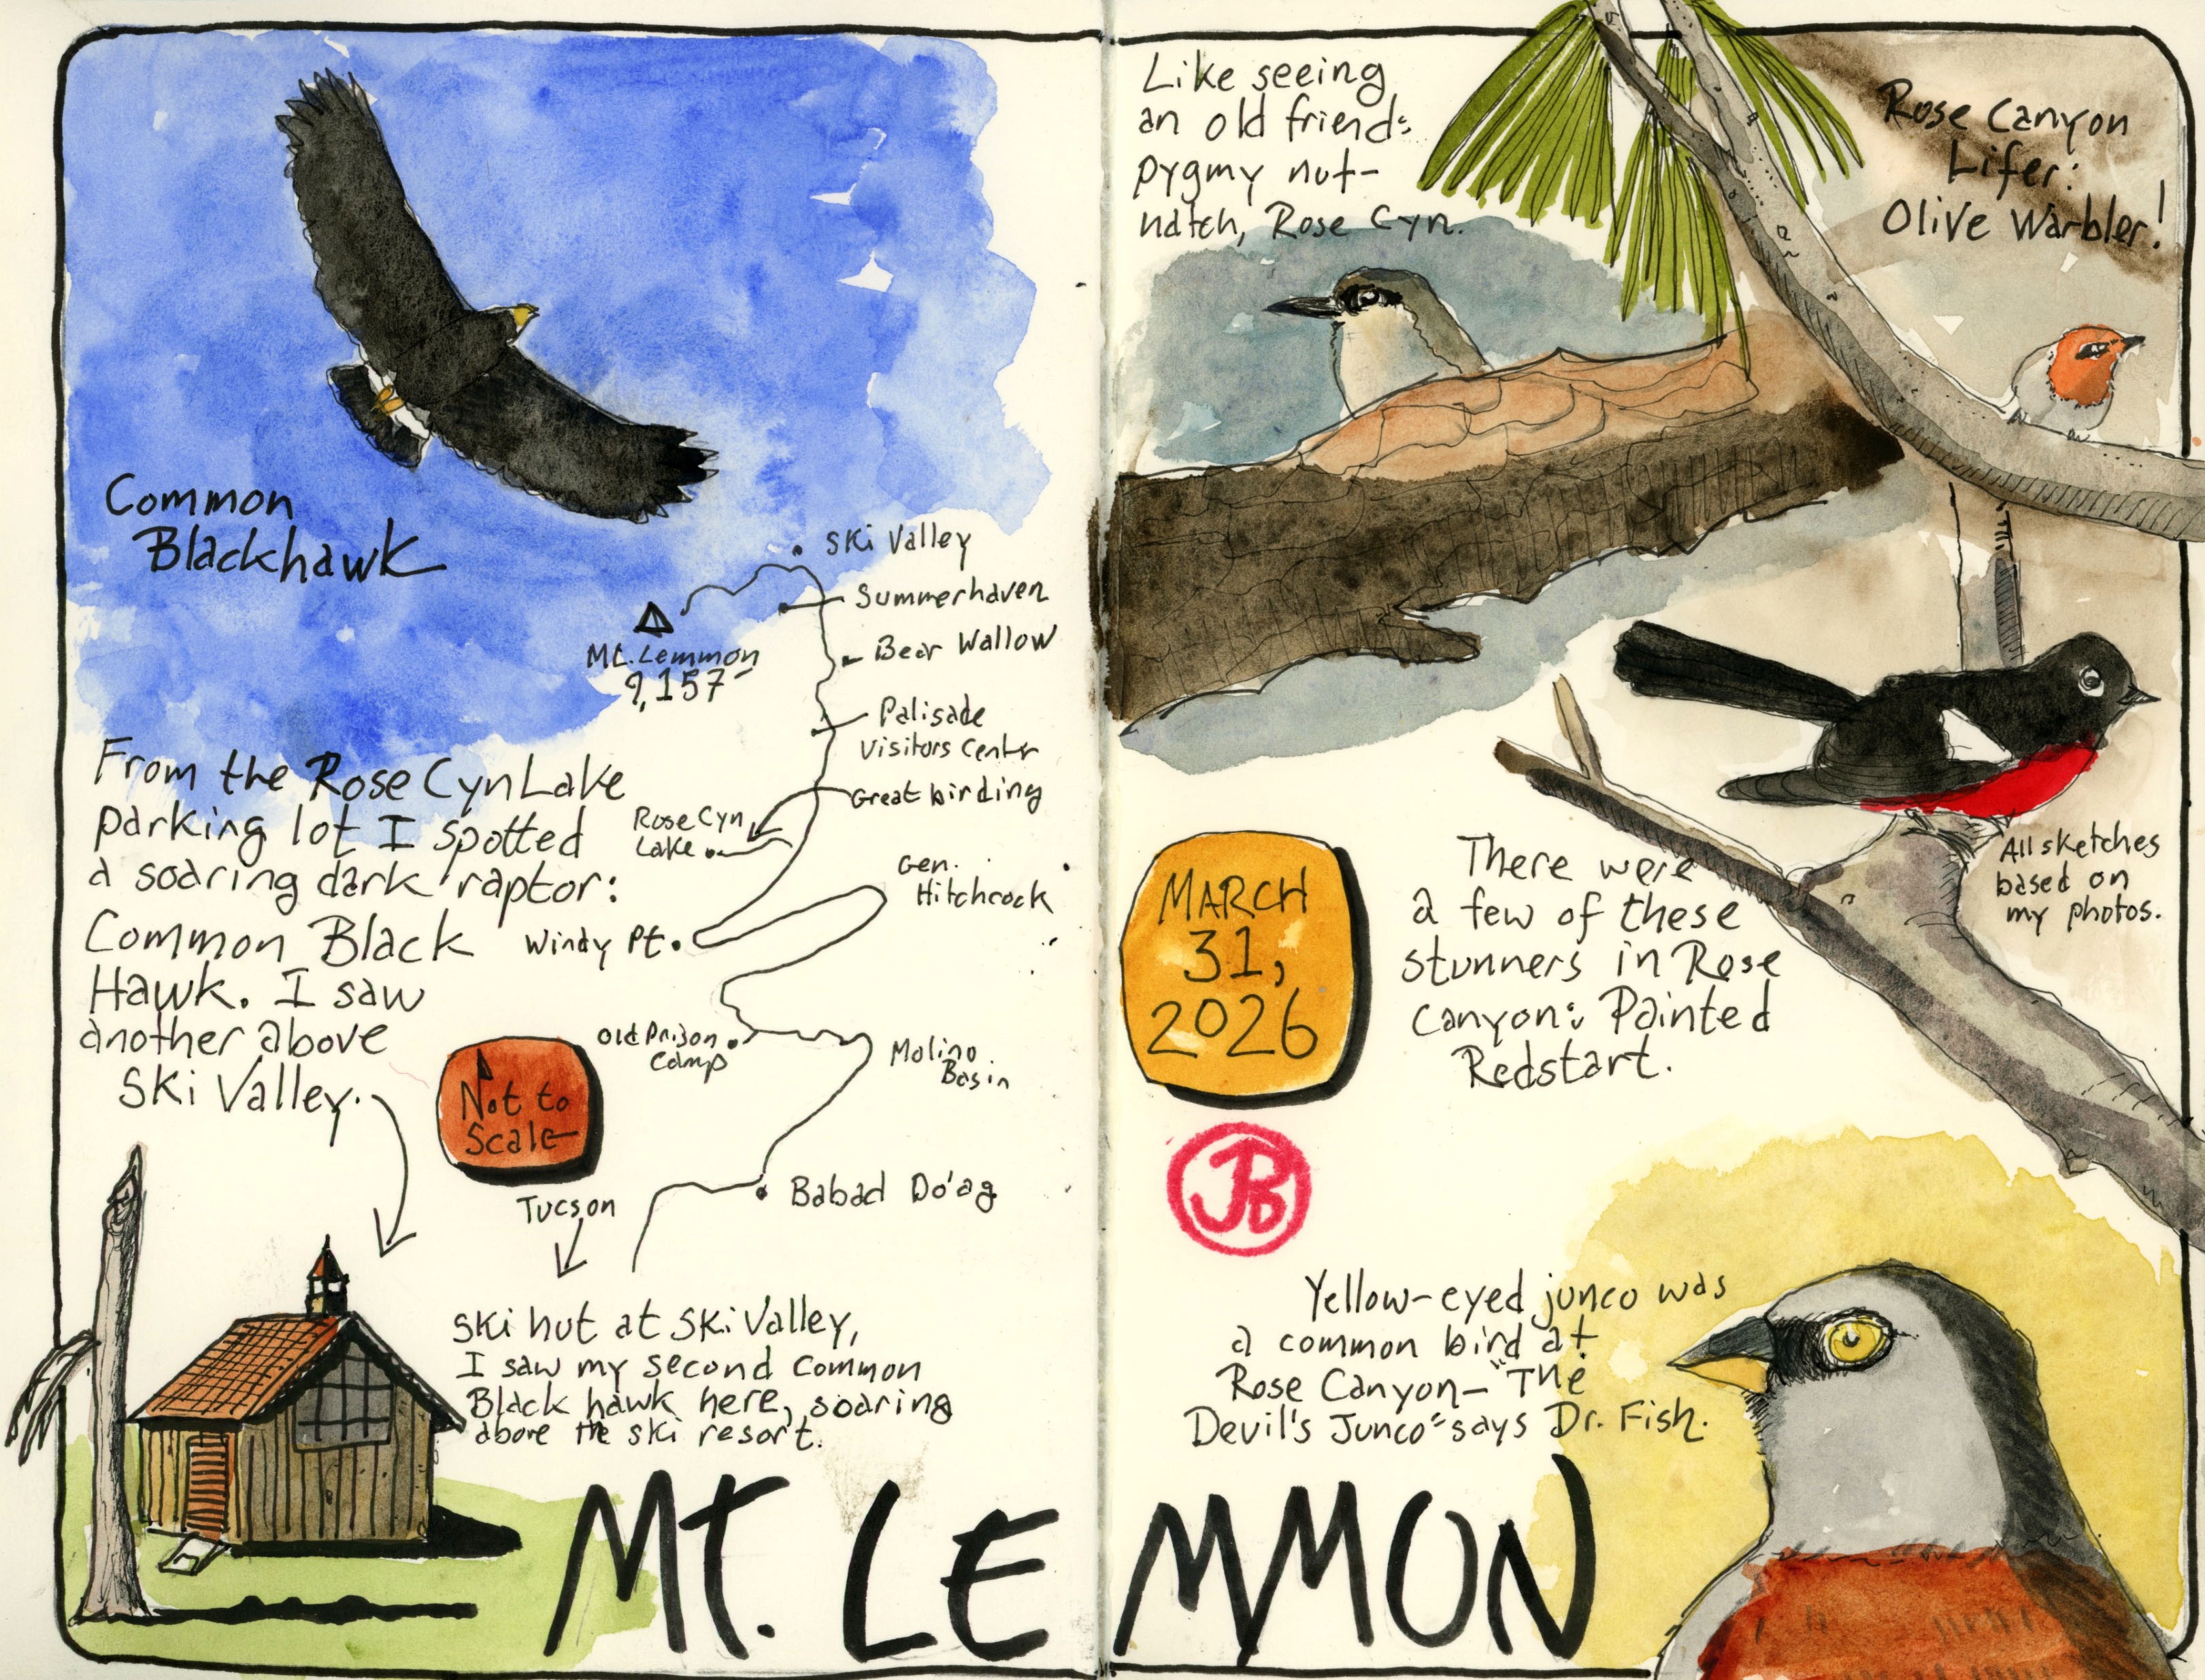 Common
Blackhawk
Ski Valley
Summerhaven
Mt. Lemmon
9,157'
Bear Wallow
Palisade
Visitors Center
Great birding
Rose Cyn
Lake
Gen.
Hitchcock
Windy Pt.
Old Prison
Camp
Molino
Basin
Babad Do'ag
Tucson
Not to
Scale
From the Rose Cyn Lake
parking lot I spotted
a soaring dark raptor:
Common Black
Hawk. I saw
another above
Ski Valley.
Ski hut at Ski Valley,
I saw my second Common
Black hawk here, soaring
above the ski resort.
Like seeing
an old friend:
pygmy nut-
hatch, Rose Cyn.
Rose Canyon
Lifer:
Olive Warbler!
All sketches
based on
my photos.
MARCH
31,
2026
There were
a few of these
stunners in Rose
Canyon: Painted
Redstart.
JB
Yellow-eyed junco was
a common bird at
Rose Canyon- "The
Devil's Junco" says Dr. Fish.
MT. LEMMON